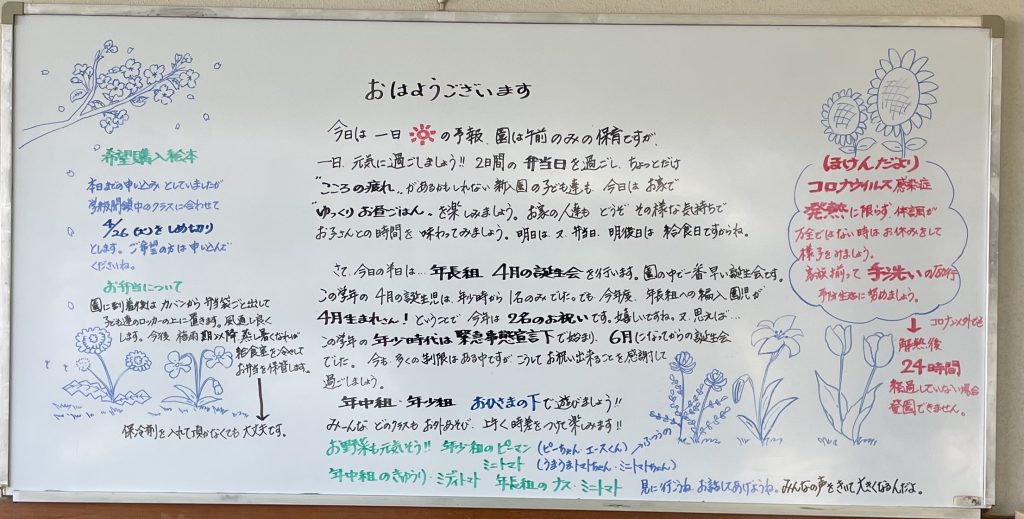 おはようございます
今日は 一日 の予報、園は午前のみの保育ですが、
一日、元気に過ごしましょう!! 2日間の弁当日を過ごし、ちょっとだけ
"こころの疲れ" があるかもしれない新入園の子ども達も、今日はお家で
"ゆっくりお昼ごはん"を楽しみましょう。お家の人達も どうぞ その様な気持ちで
お子さんとの時間を味わってみましょう。明日は、又、弁当日、明後日は給食日ですからね。
さて、今日の半日は… 年長組 4月の誕生会を行います。園の中で一番早い誕生会です。
この学年の 4月の誕生児は、年少時から 1名のみでした。でも、今年度、年長組への編入園児が
4月生まれさん! ということで 今年は 2名のお祝いです。嬉しいですね。又、思えば…
この学年の年少時代は緊急事態宣言下で始まり、6月になってからの誕生会
でした。 今も、多くの制限はある中ですが、こうしてお祝い出来ることを感謝して
過ごしましょう。
年中組・年少組 おひさまの下で遊びましょう!!
み〜んな どのクラスも お外あそび、上手く時差をつけて楽しみます!!
お野菜も元気そう!! 年少組のピーマン (ピーちゃん・エースくん)
ミニトマト (うまうまトマトちゃん・ミニトマトちゃん)
年中組のきゅうり・ミディトマト 年長組の ナス・ミニトマト 見に行こうね。お話してあげようね。みんなの声をきいて大きくなるんだよ。
希望購入絵本
本日までの申し込みとしていましたが
学級閉鎖中のクラスに合わせて
4/26 (火)をしめ切り
とします。ご希望の方は申し込んで
くださいね。
お弁当について
園に到着後はカバンから弁当袋ごと出して
子ども達のロッカーの上に置きます。風通し良く
します。今後 梅雨期以降 蒸し暑くなれば
給食室を冷やして
お弁当を保管します。
保冷剤を入れて頂かなくても大丈夫です。
ほけんだより
コロナウイルス感染症
発熱に限らず 体調が
万全ではない時はお休みをして
様子をみましょう。
家族揃って 手洗いの励行
予防生活に努めましょう。
コロナ以外でも
解熱後
24時間
経過していない場合
登園できません。